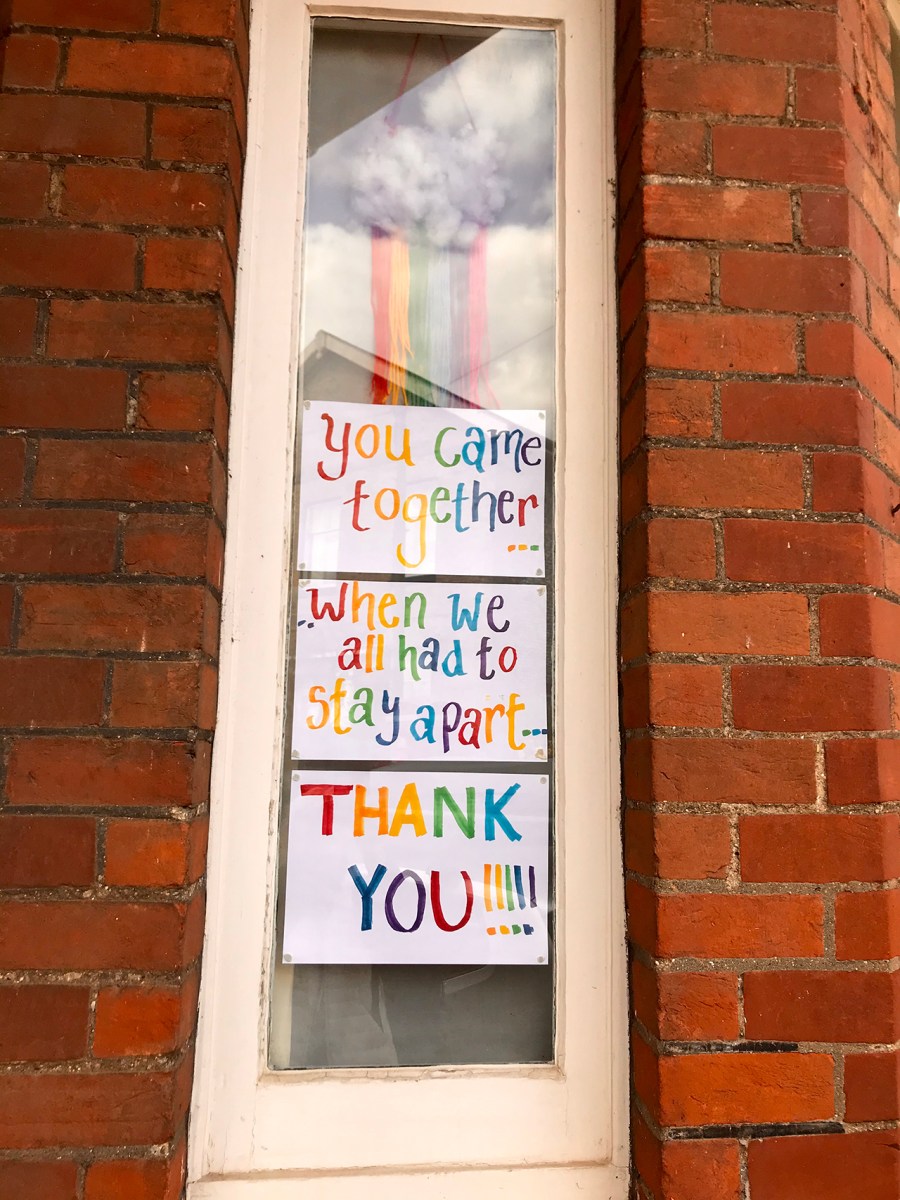 you came
together
...
..when we
all had to
stay apart...
THANK
YOU!!!!!